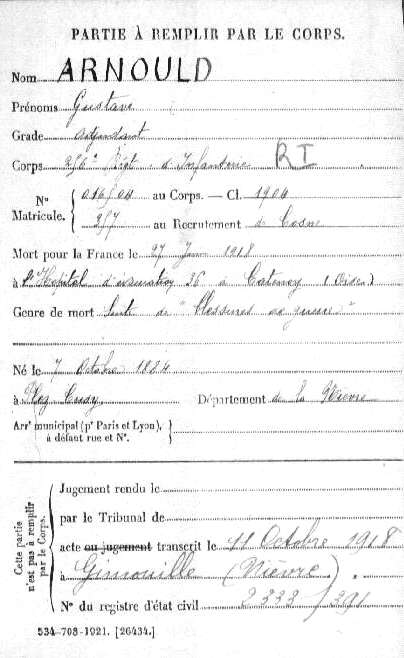 PARTIE À REMPLIR PAR LE CORPS.
Nom ARNOULD
Prénoms Gustave
Grade adjudant
Corps 256e Régt. d'Infanterie RI
N° Matricule. { 016/04 au Corps. — Cl. 1904
257 au Recrutement de Cosne
Mort pour la France le 27 Juin 1918
à l'Hopital d'évacuation 36 à Catenoy (Oise)
Genre de mort Suite de "blessures de guerre"
Né le 7 Octobre 1884
à Département de la Nièvre
Arrt municipal (pr Paris et Lyon), à défaut rue et N°. }
Cette partie n'est pas à remplir par le Corps.
Jugement rendu le
par le Tribunal de
acte ou jugement transcrit le 11 Octobre 1918
à Gimouille (Nièvre).
N° du registre d'état civil 2332/391
534-708-1921. [26434.]